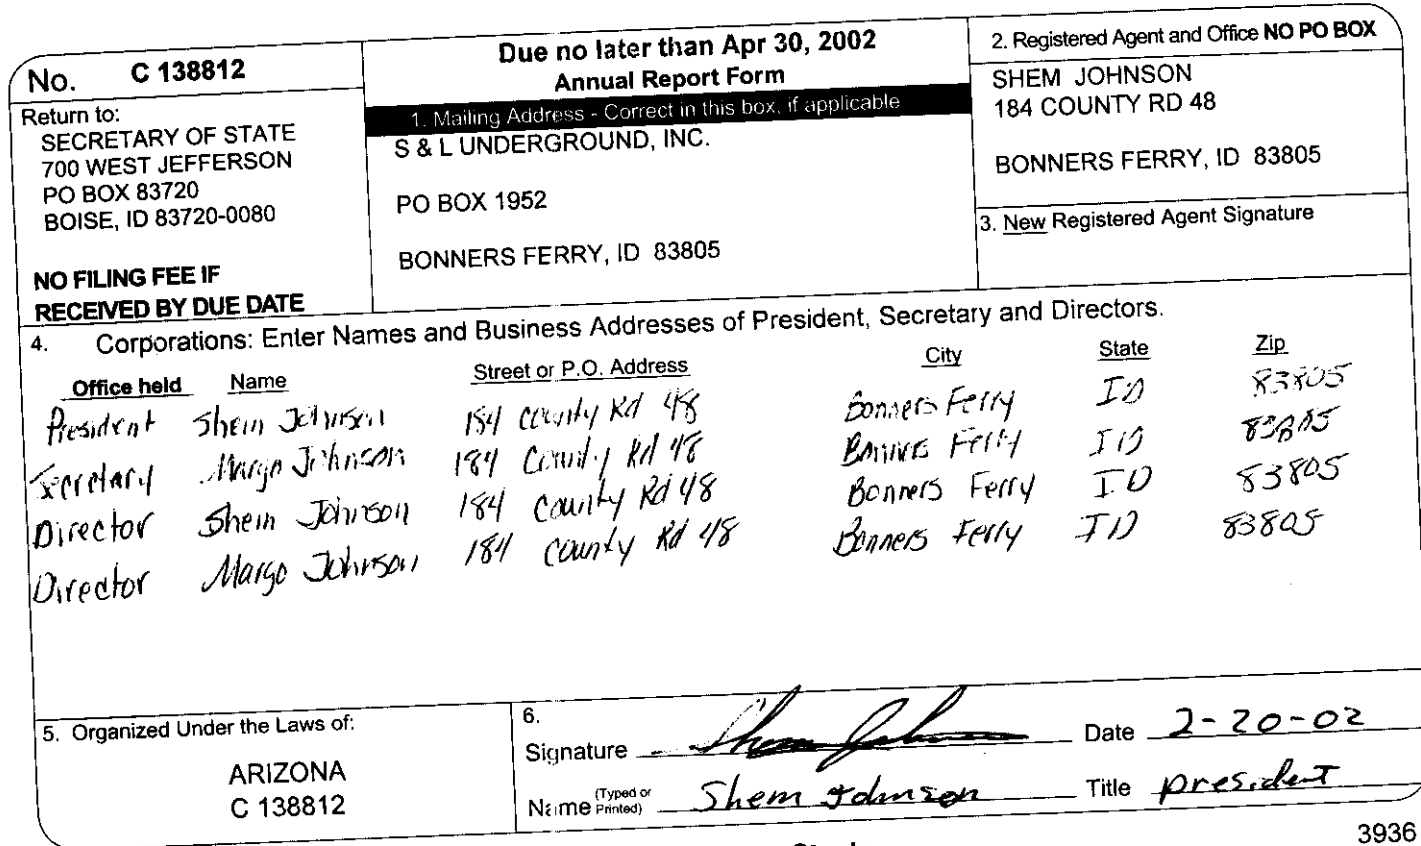 No. C 138812
Return to:
SECRETARY OF STATE
700 WEST JEFFERSON
PO BOX 83720
BOISE, ID 83720-0080
NO FILING FEE IF
RECEIVED BY DUE DATE
Due no later than Apr 30, 2002
Annual Report Form
1. Mailing Address - Correct in this box, if applicable
S & L UNDERGROUND, INC.
PO BOX 1952
BONNERS FERRY, ID 83805
2. Registered Agent and Office NO PO BOX
SHEM JOHNSON
184 COUNTY RD 48
BONNERS FERRY, ID 83805
3. New Registered Agent Signature
4. Corporations: Enter Names and Business Addresses of President, Secretary and Directors.
Office held Name Street or P.O. Address City State Zip
President Shem Johnson 184 County Rd 48 Bonners Ferry ID 83805
Secretary Margo Johnson 184 County Rd 48 Bonners Ferry ID 83805
Director Shem Johnson 184 County Rd 48 Bonners Ferry ID 83805
Director Margo Johnson 184 County Rd 48 Bonners Ferry ID 83805
5. Organized Under the Laws of:
ARIZONA
C 138812
6.
Signature Shem Johnson Date 2-20-02
Name (Typed or Printed) Shem Johnson Title president
3936